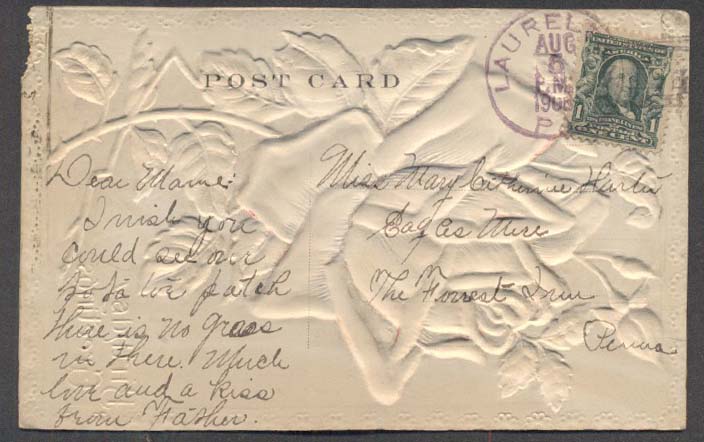 POST CARD
LAUREL
AUG
5
P.M.
1908
P
1
ONE CENT
1
Dear Mame:
I wish you
could see our
po ta toe patch
there is no grass
in there. Much
love and a kiss
from Father.
Miss Mary Catherine
Eag as Mere
The Forrest Inn
Penna